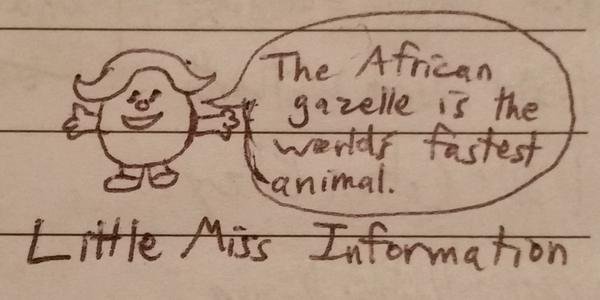 The African
gazelle is the
worlds fastest
animal.
Little Miss Information